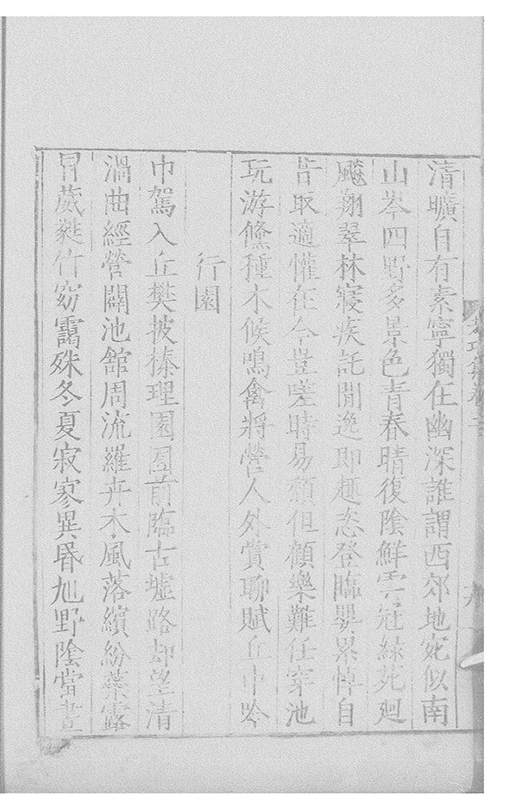 清曠自有素寧獨在幽深誰謂西郊地宛似南
山岑四野多景色青春晴復陰鮮雲冠綠苑迴
飈翔翠林寢疾託閒逸即趣恣登臨 累悼自
昔取適懽在今豈嗟時易頹但願樂難任穿池
玩游鯈種木候鳴禽將營人外賞聊賦丘中吟
行園
巾駕入丘樊披榛理園囿前臨古墟路却望清
渦曲經營闢池館周流羅卉木風落繽紛蘂露
冒葳蕤竹窈靄殊冬夏寂寥異昏旭野陰當晝